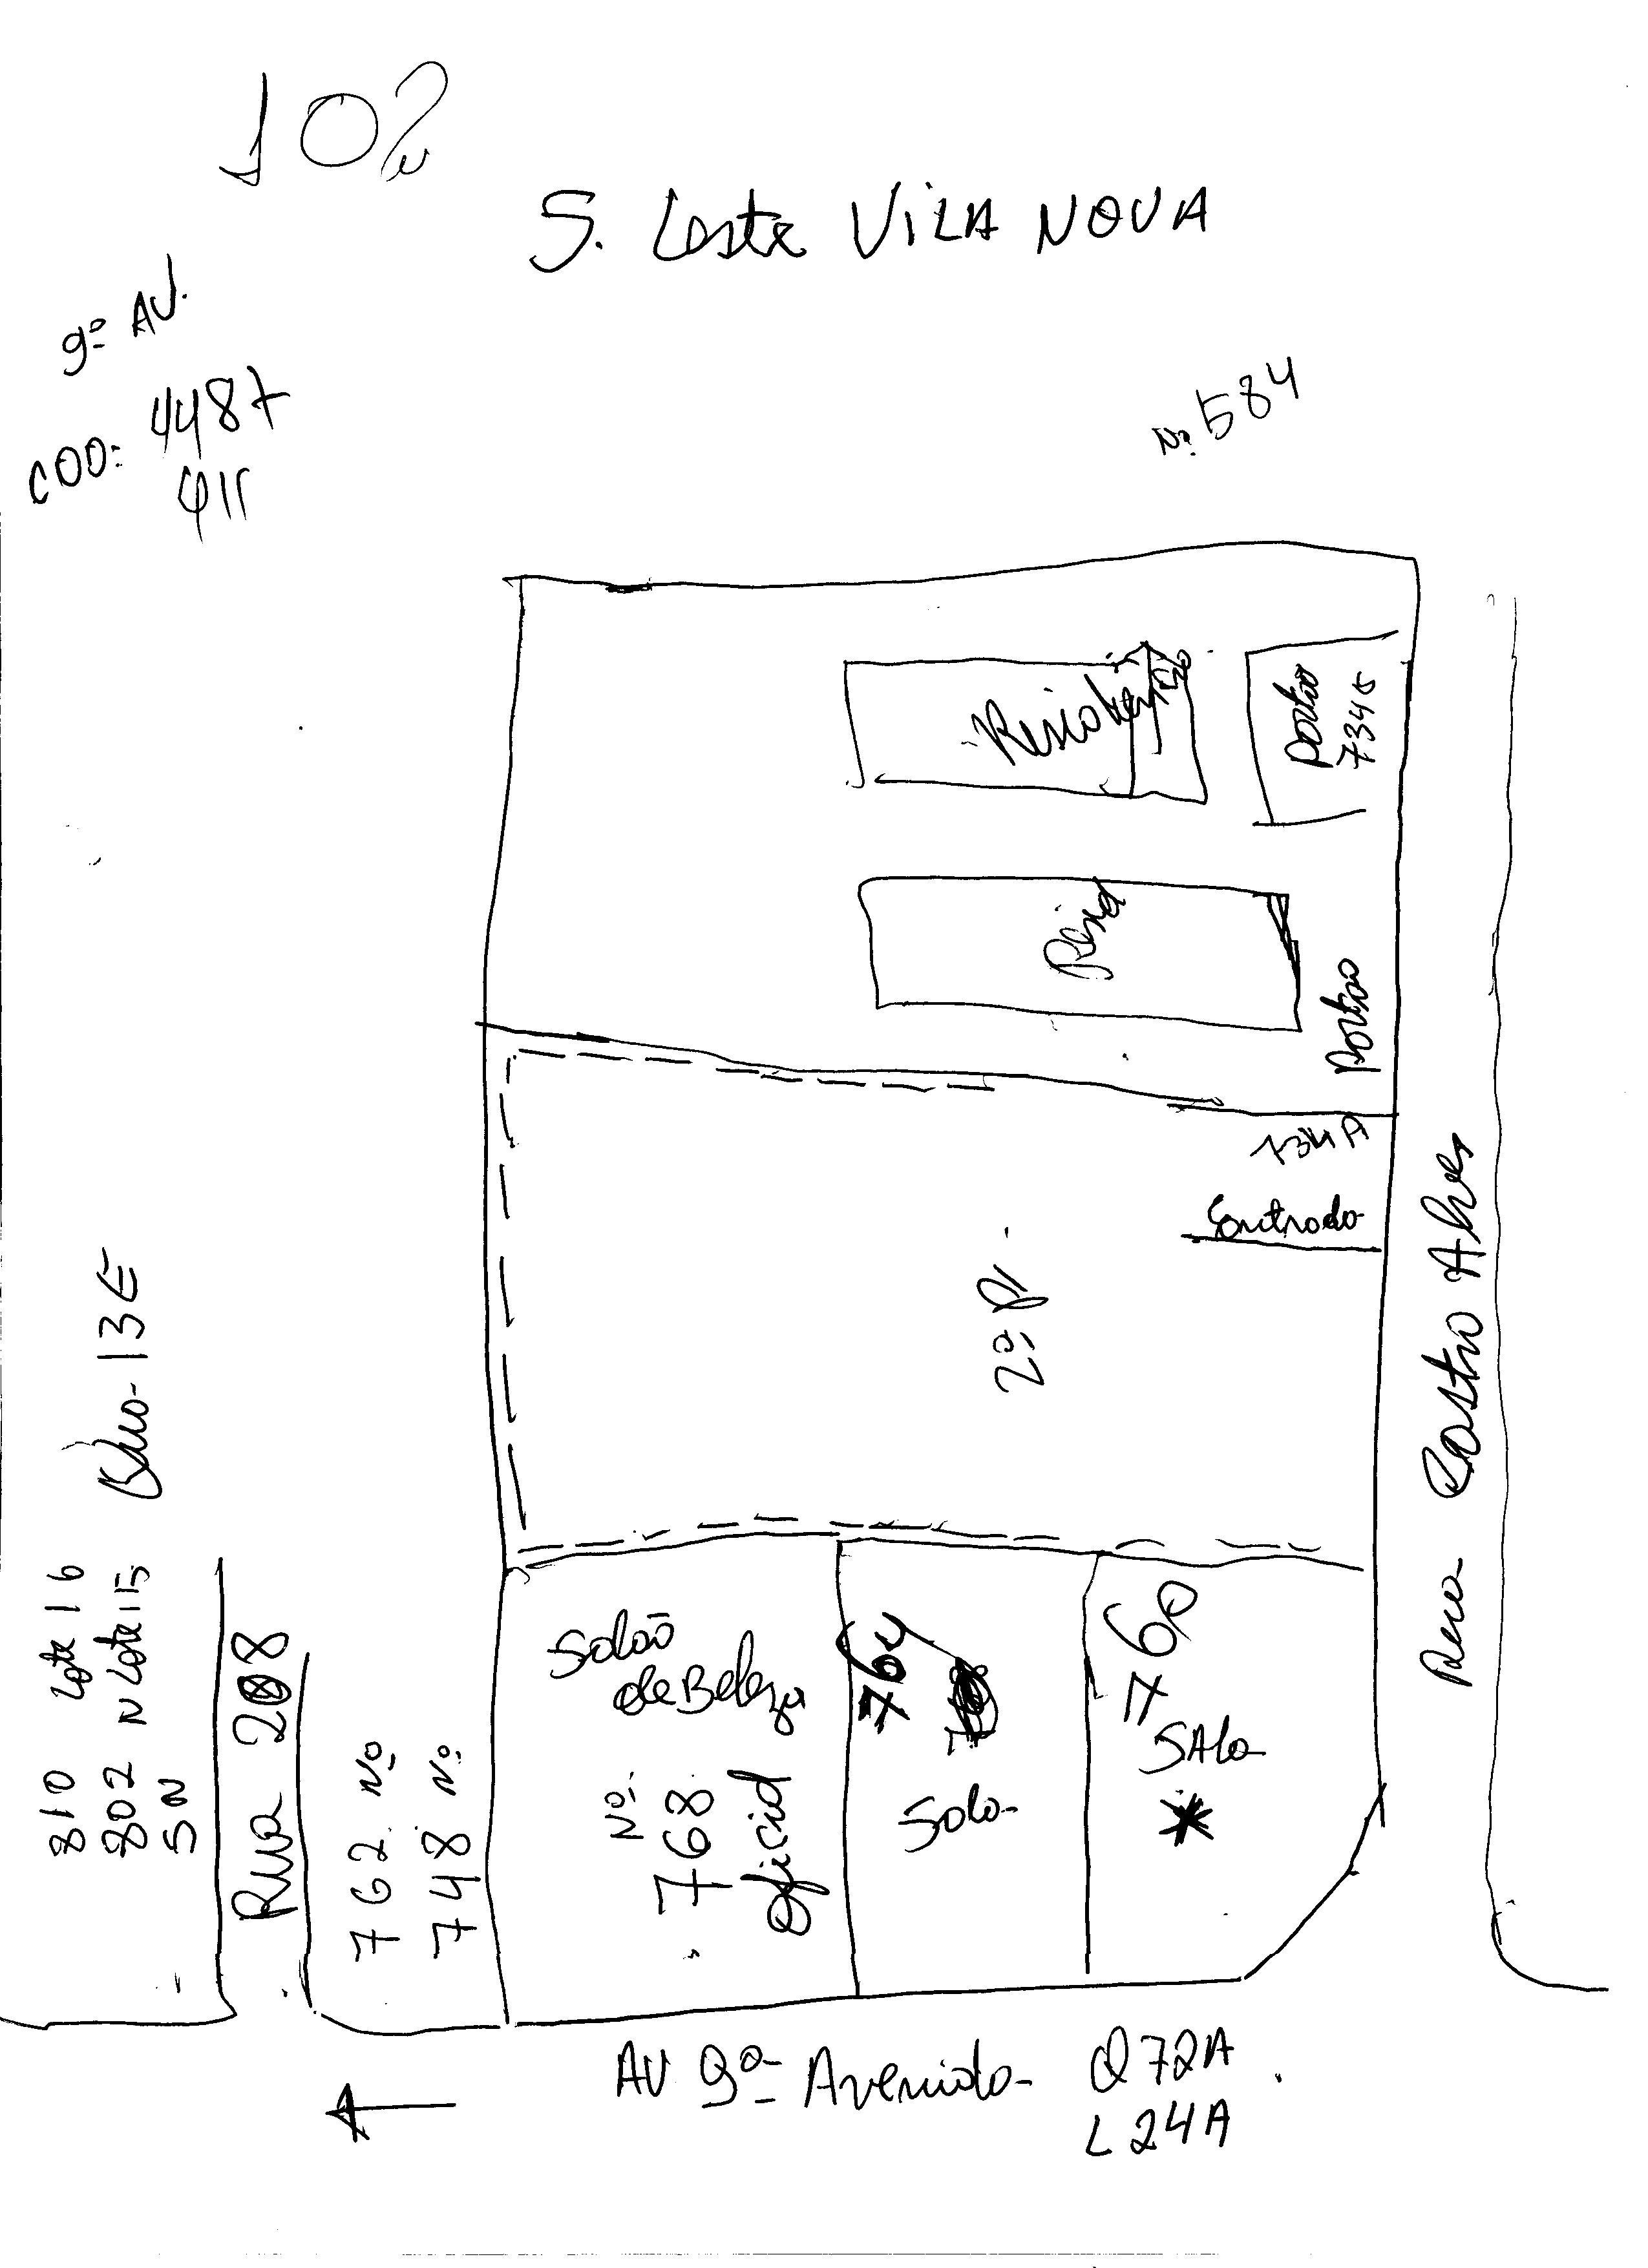 102
S. Leste VILA NOVA
9º AV.
COD: 4487
411
Nº 584
Residencia
portão
7345
Resid
portão
734 A
Entrada
2º P
Rua Castro Alves
13E
810 Lote 16
802 N Lote 15
SN
Rua 208
762 Nº
748 Nº
Salão
de Beleza
Nº
768
Oficial
764
Sala
760
SALA
AV 9º Avenida Q 72A
L 24A